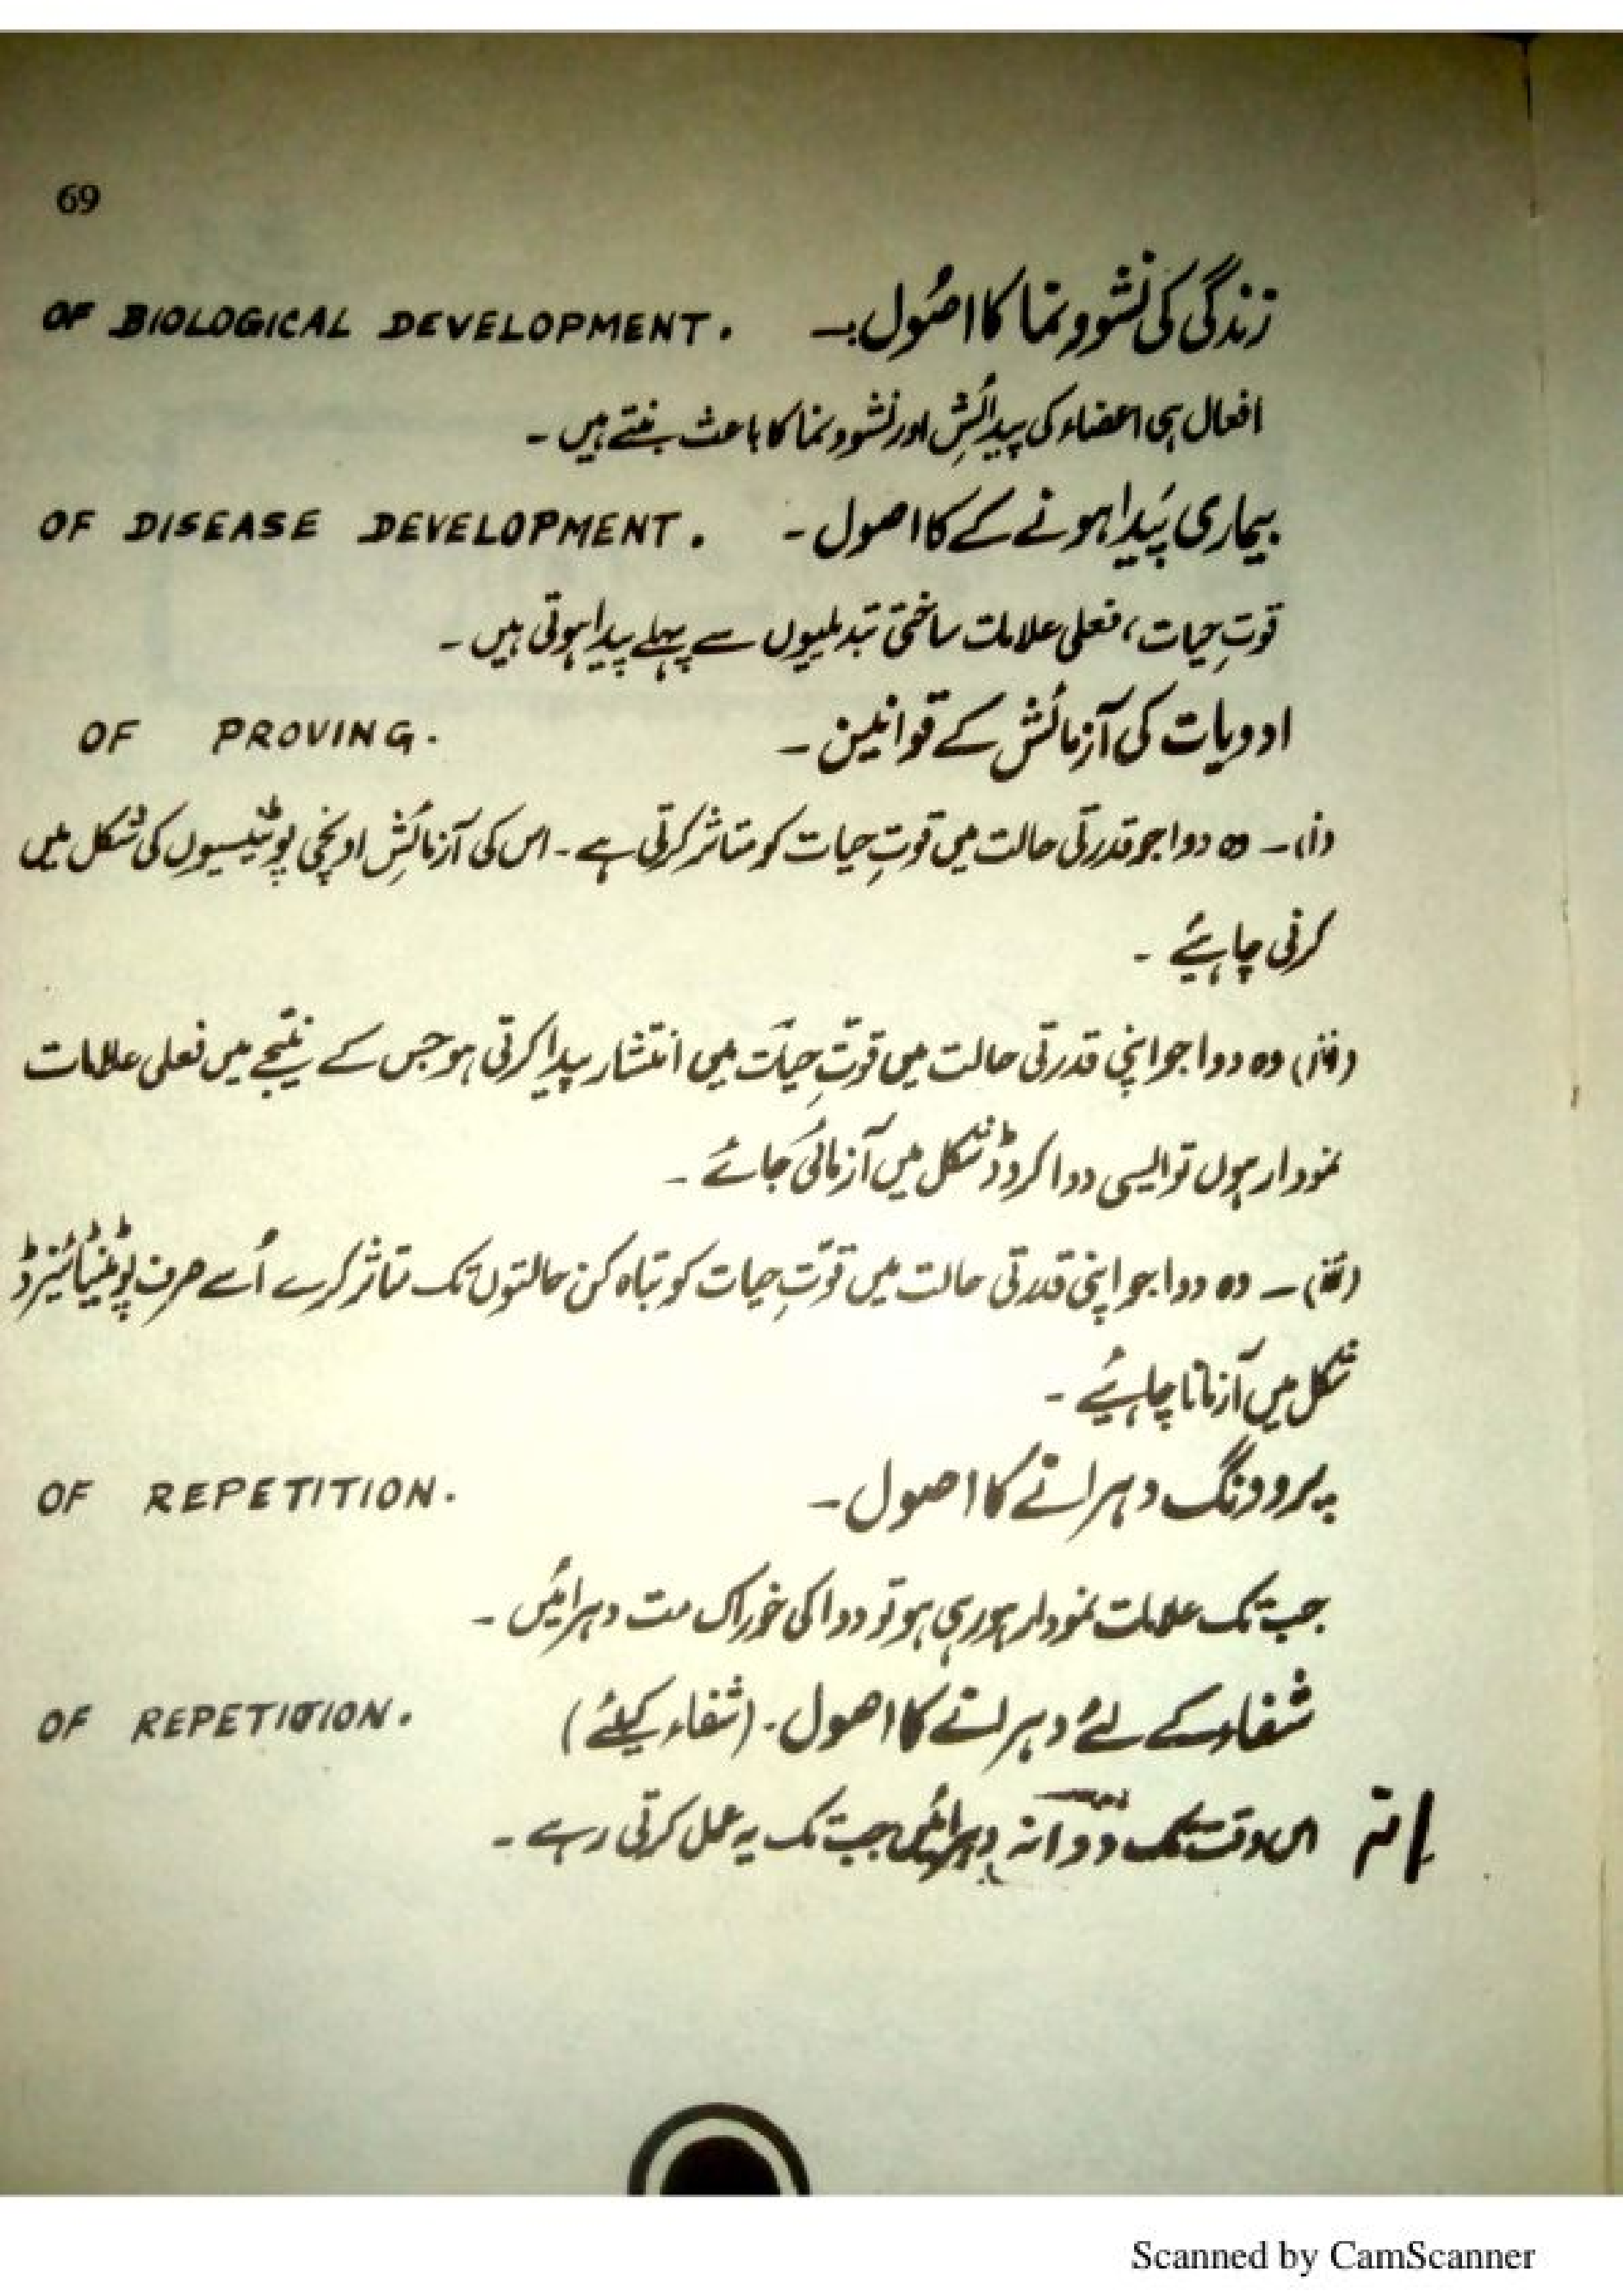 69
زندگی کی نشوونما کا اصُول :۔ OF BIOLOGICAL DEVELOPMENT.
افعال ہی اعضاء کی پیدائشِ اور نشوونما کا باعث بنتے ہیں ۔
بیماری پَیدا ہونے کے کا اصول ۔ OF DISEASE DEVELOPMENT.
قوتِ حیات، فعلی علامات ساختی تبدیلیوں سے پہلے پیدا ہوتی ہیں ۔
ادویات کی آزمائش کے قوانین ۔ OF PROVING.
(i) ۔ وہ دوا جو قدرتی حالت میں قوتِ حیات کو متاثر کرتی ہے ۔ اس کی آزمائشِ اونچی پوٹینسیوں کی شکل میں
کرنی چاہیئے ۔
(ii) وہ دوا جو اپنی قدرتی حالت میں قوتِ حیات میں انتشار پیدا کرتی ہو جس کے نیتجے میں فعلی علامات
نمودار ہوں تو ایسی دوا کروڈ شکل میں آزمائی جائے ۔
(iii) ۔ وہ دوا جو اپنی قدرتی حالت میں قوّتِ حیات کو تباہ کن حالتوں تک متاثر کرے اُسے صرف پوٹینٹائیزڈ
شکل میں آزمانا چاہیئے ۔
پروونگ دہرانے کا اصول ۔ OF REPETITION.
جب تک علامات نمودار ہو رہی ہو تو دوا کی خوراک مت دہرائیں ۔
شفاء کے لئے دہرانے کا اصول ۔ (شفاء کیلئے) OF REPETITION.
اس وقت تک دوا نہ دہرائیں جب تک یہ عمل کرتی رہے ۔
Scanned by CamScanner